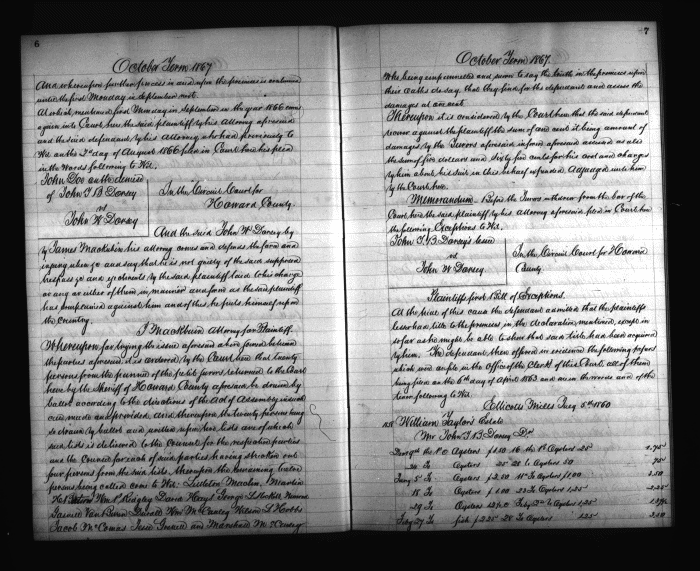 6
October Term 1867
And whereupon further process in and upon the premises is continued
until the first Monday in September next.
At which mentioned first Monday in September in the year 1866 come
again into Court here the said plaintiff by his Attorney aforesaid
and the said defendant by his Attorney who had previously to
Wit on the 2nd day of August 1866 filed in Court here his plea
in the Words following to Wit.
John Doe on the demise
of John T B Dorsey
vs
John W Dorsey
In the Circuit Court for
Howard County.
And the said John W Dorsey by
by James Mackubin his Attorney comes and defends the force and
injury when &c and says that he is not guilty of the said supposed
trespass and ejectments by the said plaintiff laid to his charge
or any or either of them in manner and form as the said plaintiff
has complained against him and of this he puts himself upon
the country.
J Mackubin Attorney for Plaintiff.
Whereupon for trying the issue aforesaid above joined between
the parties aforesaid it is ordered by the Court here that twenty
persons from the pannel of the petit jurors returned to the Court
here by the Sheriff of Howard County aforesaid be drawn by
ballot according to the directions of the Act of Assembly in such
case made and provided and thereupon the twenty persons being
so drawn by ballot and written upon two lists one of which
said lists is delivered to the Counsel for the respective parties
and the Counsel for each of said parties having stricken out
four persons from the said lists thereupon the remaining twelve
persons being called come to Wit. Littleton Maclin,
Wm P Ridgely David Hays George L Stockett
Wm McCauley Wilson L Hobbs
Jacob McComas and Marshall McCauley
7
October Term 1867.
Who being empannelled and sworn to say the truth in the premises upon
their oaths do say that they find for the defendant and assess the
damages at one cent.
Thereupon it is considered by the Court here that the said defendant
recover against the plaintiff the sum of one cent it being amount of
damages by the Jurors aforesaid in form aforesaid assessed as also
the sum of five dollars and sixty five cents for his cost and charges
by him about his suit in this behalf expended. Adjudged unto him
by the Court here.
Memorandum. Before the Jurors withdrew from the bar of the
Court here the said plaintiff by his Attorney aforesaid filed in Court here
the following Exceptions to Wit.
John T B Dorsey's lessee
vs
John W Dorsey
In the Circuit Court for Howard
County.
Plaintiffs first Bill of Exceptions.
At the trial of this cause the defendant admitted that the plaintiffs
lessor had title to the premises in the declaration mentioned, except in
so far as he might be able to show that said title had been acquired
by him. The defendant then offered in evidence the following papers
which were on file in the Office of the Clerk of this Court all of them
being filed on the 6th day of April 1863 and are in the words and of the
tenor following to Wit.
Ellicotts Mills July 5th 1860
William Taylors Estate
Mr John T B Dorsey Dr
Oysters 1.50 16 the 1st Oysters 25 1.75
24 To Oysters 25 28 to Oysters 50 75
5 To Oysters 1.00 2.50
18 To Oysters 1.00 23 To Oysters 1.25 2.25
29 To Oysters Oysters 1.25
27 To fish 28 To Oysters 1.25 2.50